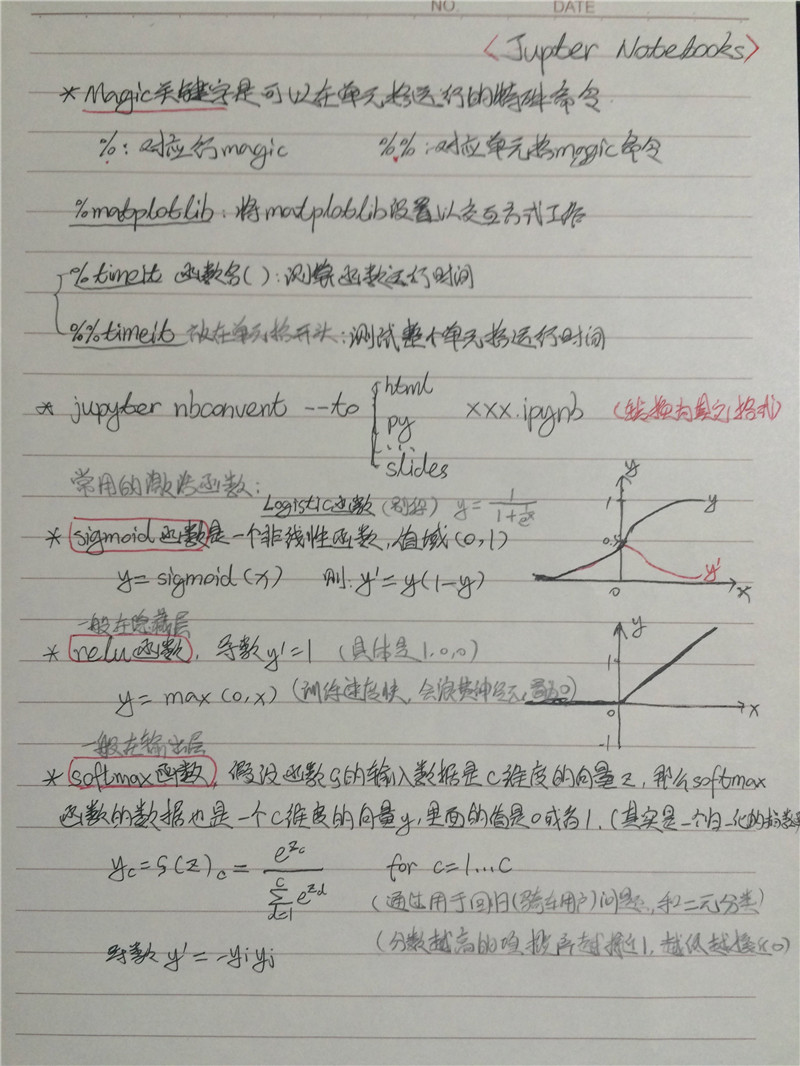 NO. DATE
<Jupter Notebooks>
* Magic关键字是可以在单元格运行的特殊命令.
%: 对应行magic %%: 对应单元格magic命令
%matplotlib: 将matplotlib设置以交互方式工作
%timeit 函数名(): 测算函数运行时间
%%timeit 放在单元格开头: 测试整个单元格运行时间
html
* jupyter nbconvent --to py xxx.ipynb (转换为其它格式)
...
slides
常用的激活函数:
Logistic函数 (别称) y = 1/(1+e^-x)
* sigmoid函数是一个非线性函数, 值域(0,1)
y = sigmoid(x) 则: y' = y(1-y)
y 1 y 0.5 y' 0 x
一般在隐藏层
* relu函数, 导数y'=1 (具体是1,0,0)
y = max(0,x) (训练速度快, 会浪费神经元,
y 1 0 x -1
一般在输出层
* softmax函数, 假设函数ς的输入数据是C维度的向量z, 那么softmax
函数的数据也是一个C维度的向量y, 里面的值是0或者1. (其实是一个归一化的指数
y_c = ς(z)_c = e^{z_c} / Σ_{d=1}^{C} e^{z_d} for c=1...C
(通过用于回归(骑车用户)问题, 和二元分类)
(分数越高的项 越接近1, 越低越接近0)
导数 y' = -yiyj